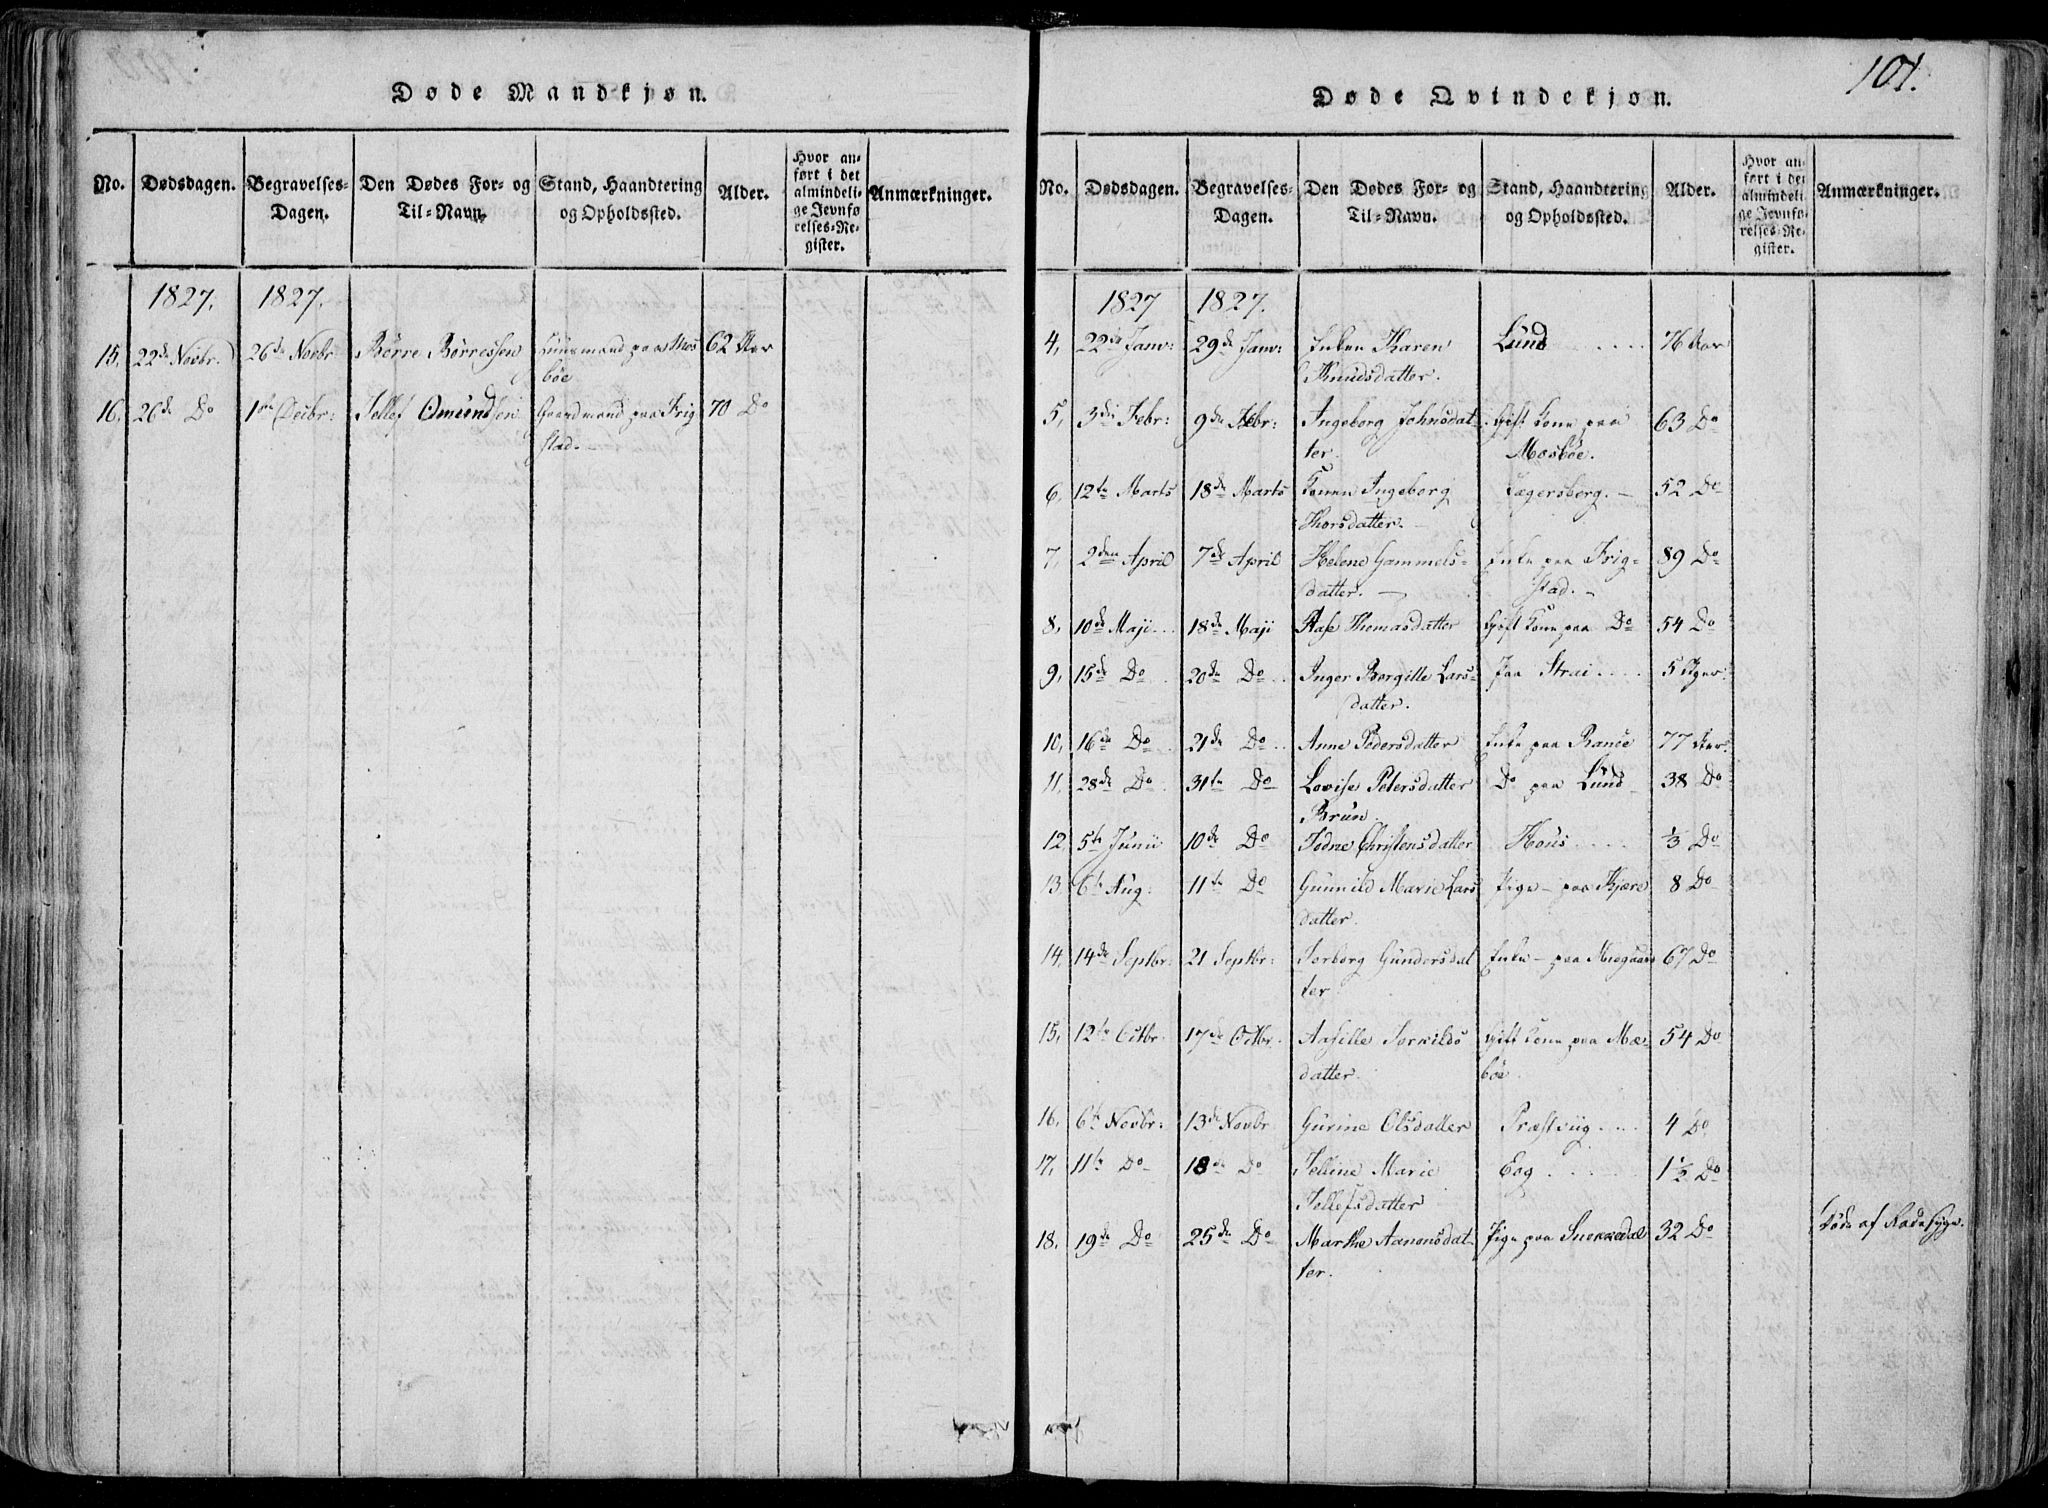 Døde Mandkjøn.
No. Dødsdagen. Begravelses-Dagen. Den Dødes For- og Til-Navn. Stand, Haandtering og Opholdssted. Alder. Hvor anført i det almindelige Jevnførelses-Register. Anmærkninger.
1827. 1827.
15. 22de Novbr. 26de Novbr Børre Børressen Huusmand paa Mos 62 Aar
bøe
16. 26de Do 1ste Decbr: Tellef Omundsen Gaardmand paa Frig 70 Do
stad.
101.
Døde Qvindekjøn.
No. Dødsdagen. Begravelses-Dagen. Den Dødes For- og Til-Navn. Stand, Haandtering og Opholdssted. Alder. Hvor anført i det almindelige Jevnførelses-Register. Anmærkninger.
1827 1827.
4, 22de Janv: 29de Janv: Enken Karen Lund 76 Aar
Knudsdatter.
5, 3die Febr: 9de Febr: Ingeborg Johnsdat- Gift Kone paa 63 Do
ter. Mosbøe.
6, 12te Marts 18de Marts Konen Ingeborg Eegersberg. 52 Do
Thorsdatter.
7, 2den April 7de April Helene Gammels- Enke paa Frig- 89 Do
datter. stad.
8, 10de Maji 18de Maji Aase Thomasdatter Gift Kone paa Do 54 Do
9, 15de Do 20de Do Inger Bergitte Lars- Paa Strai 5 Uger
datter.
10, 16de Do 21de Do Anne Pedersdatter Enke paa Ranøe 77 Aar
11, 28de Do 31te Do Lovise Petersdatter Do paa Lund 38 Do
Brun
12 5te Junii 10de Do Todne Christensdatter Hous 1/3 Do
13. 6te Aug: 11te Do Gunnild Marie Lars Pige paa Kjære 8 Do
datter.
14, 14de Septbr: 21 Septbr: Torborg Gundersdat Enke paa 67 Do
ter
15, 12te Octbr. 17de Octbr. Aasille Torkilds Gift Kone paa Mæ- 54 Do
datter. bøe
16, 6te Novbr: 13de Novbr Gurine Olsdatter Præstviig 4 Do
17, 11te Do 18de Do Telline Marie Eeg 1 1/2 Do
Tellefsdatter
18. 19de Do 25de Do Marthe Aanonsdat- Pige paa Suekkedal 32 Do Døde af Radesyge.
ter.